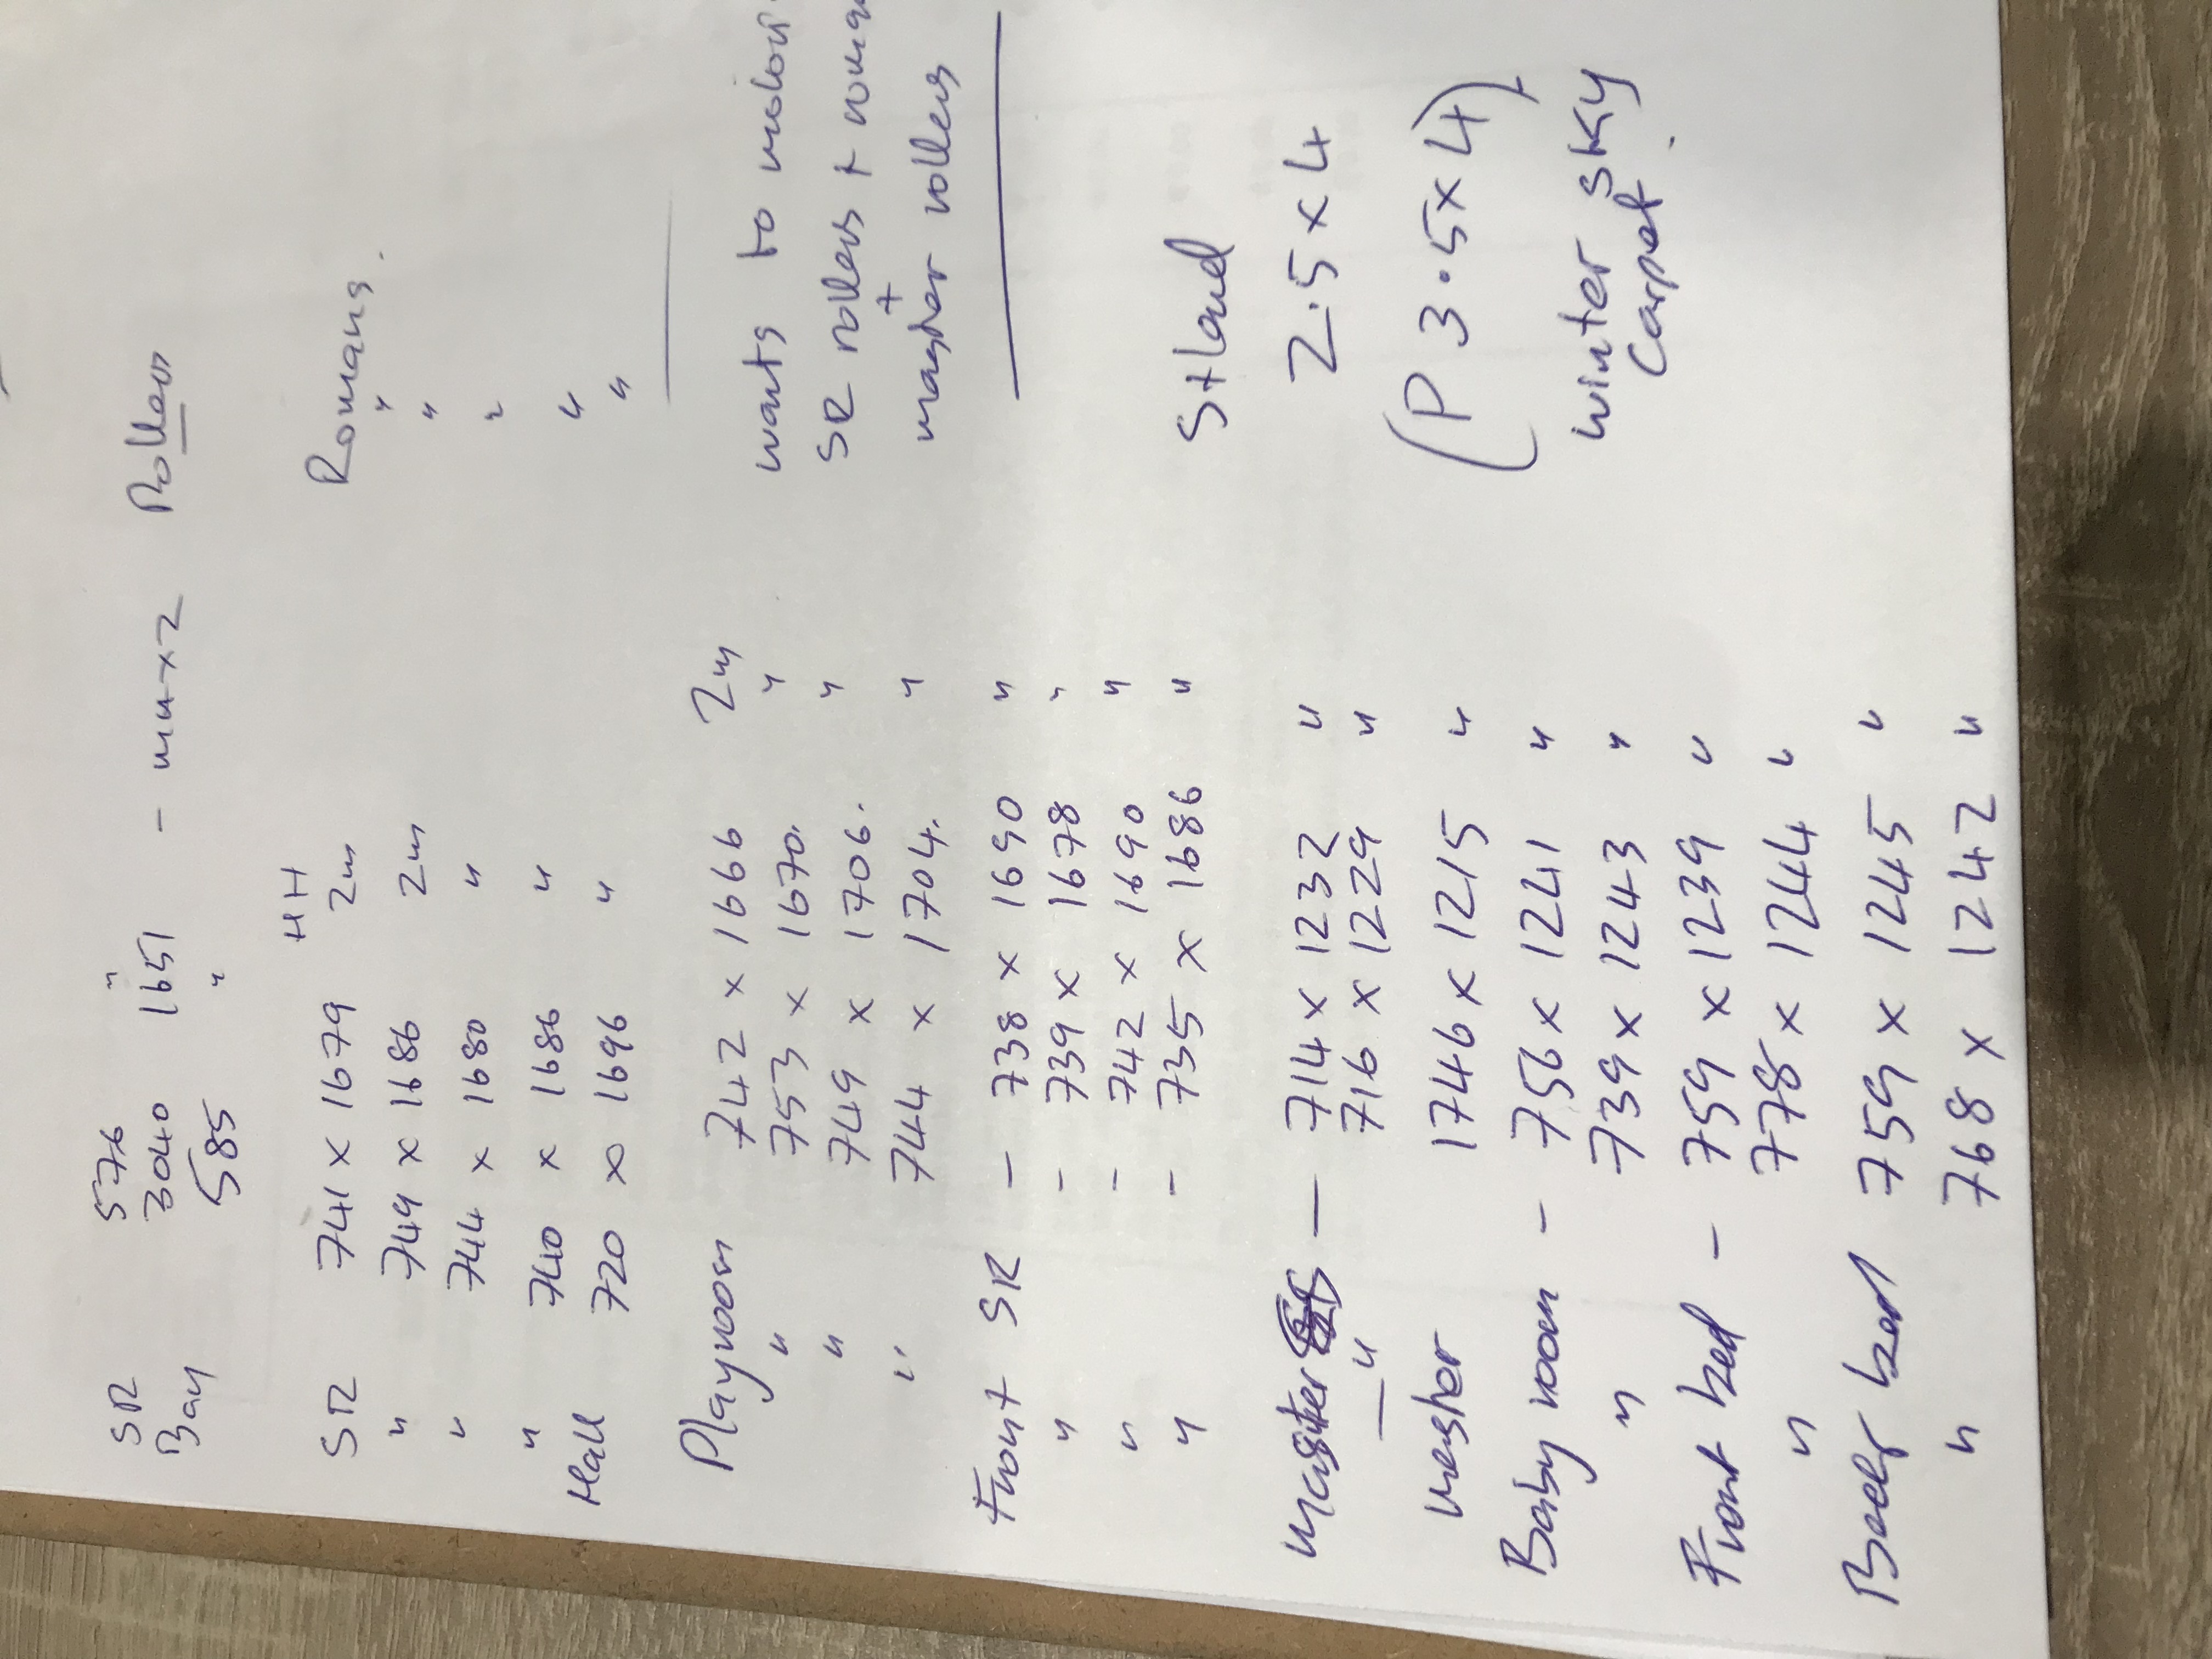 SR 576 "
Bay 3040 1651 - max 2 Rollers
585 "
HH
SR 741 x 1679 2m Romans.
" 749 x 1686 2m "
" 744 x 1680 " "
" 740 x 1686 " "
Hall 720 x 1696 " "
"
Playroom 742 x 1666 2m
" 753 x 1670. "
" 749 x 1706. "
" 744 x 1704. "
wants to
SR rollers +
+
master rollers
Front SR - 738 x 1690 "
" - 739 x 1678 "
" - 742 x 1690 "
" - 735 x 1686 "
Master - 714 x 1232 "
" 716 x 1229 "
Master 1746 x 1215 "
Baby room - 756 x 1241 "
" 739 x 1243 "
Front bed - 759 x 1239 "
" 778 x 1244 "
Back bed 759 x 1245 "
" 768 x 1242 "
S+land
2.5 x 4
(P 3.5 x 4)
Winter Sky
Carpet.